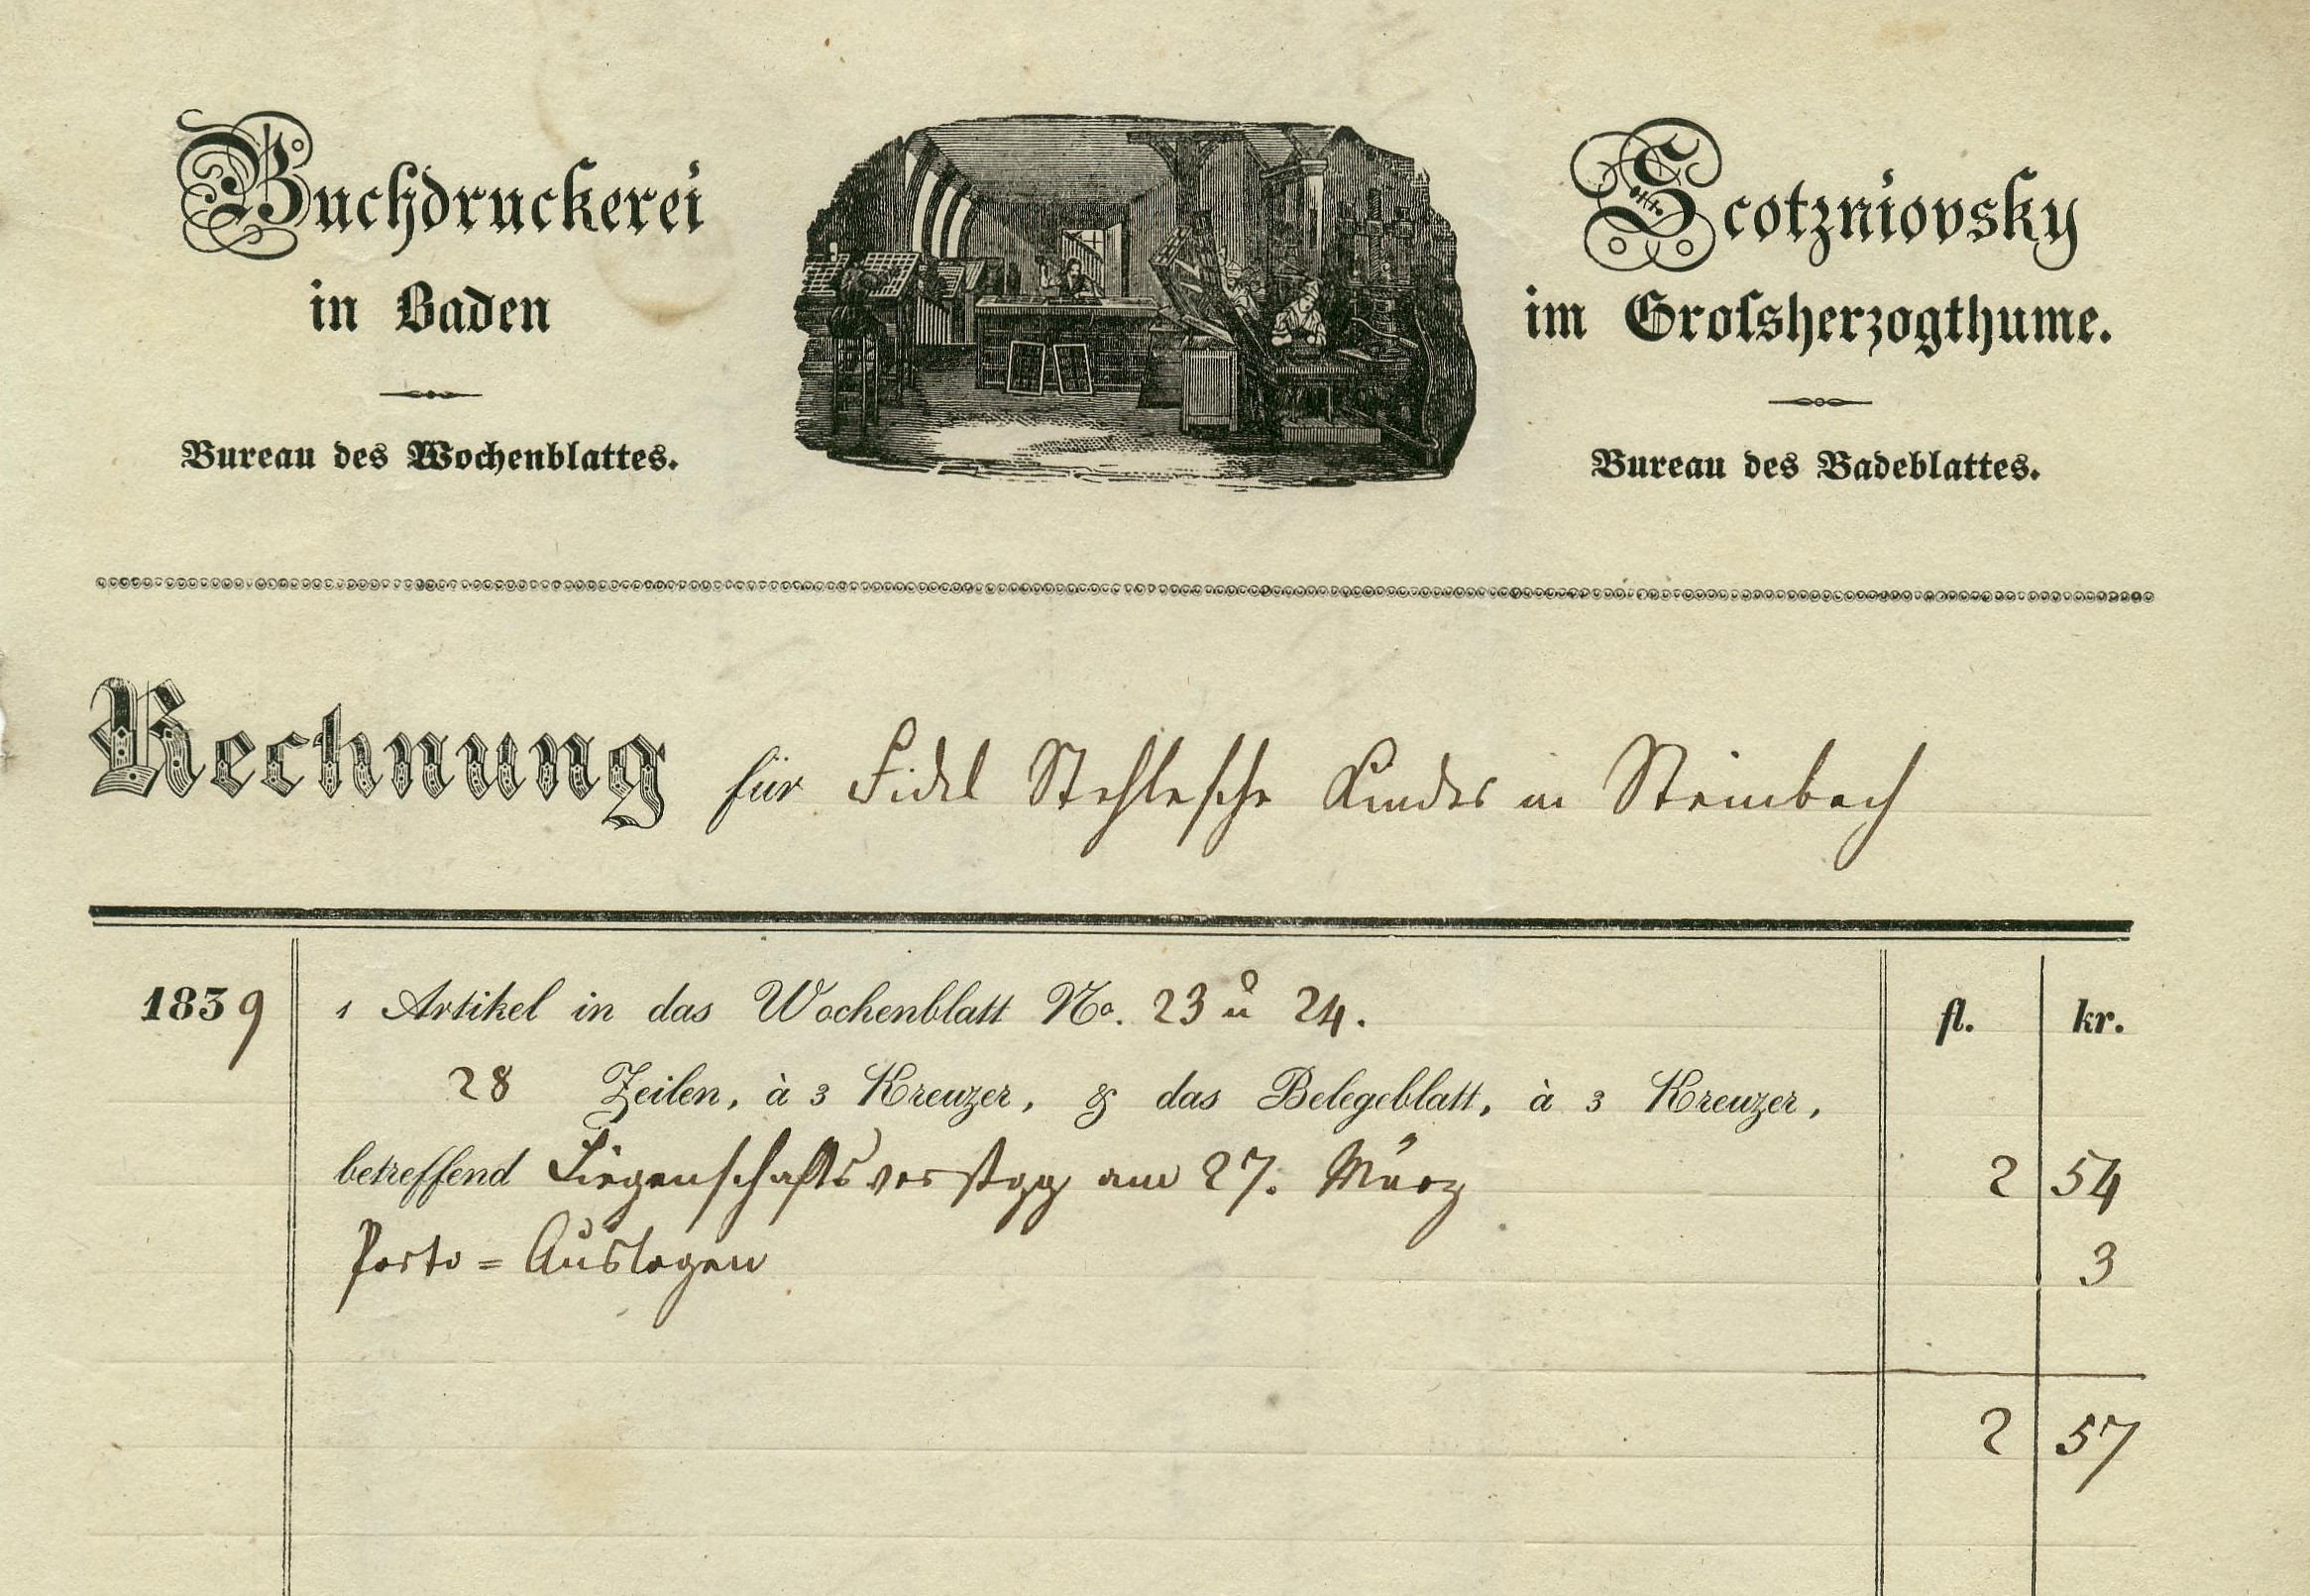 Buchdruckerei
in Baden
Bureau des Wochenblattes.
Otto
Scotzniovsky
im Grofsherzogthume.
Bureau des Badeblattes.
Rechnung für Fidel Stehlesche Kinder in Steinbach
1839 1 Artikel in das Wochenblatt No. 23 u 24. fl. kr.
28 Zeilen, à 3 Kreuzer, & das Belegeblatt, à 3 Kreuzer,
betreffend Liegenschaftsverstgg am 27. März 2 54
Porto = Auslagen 3
2 57